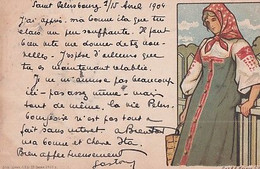 Saint Petersbourg 2/15 Avril 1904
J'ai appris, ma bonne Ita que tu
étais un peu souffrante. Il faut
bien me donner de tes nou-
velles. J'espère d'ailleurs que
tu es maintenant rétablie.
Je ne m'amuse pas beaucoup
ici - pas assez même - mais
tout de même, la vie Péters-
bourgeoise n'est pas tout à
fait sans intérêt. à Bientôt
ma bonne et chère Ita
Bien affectueusement
Gaston